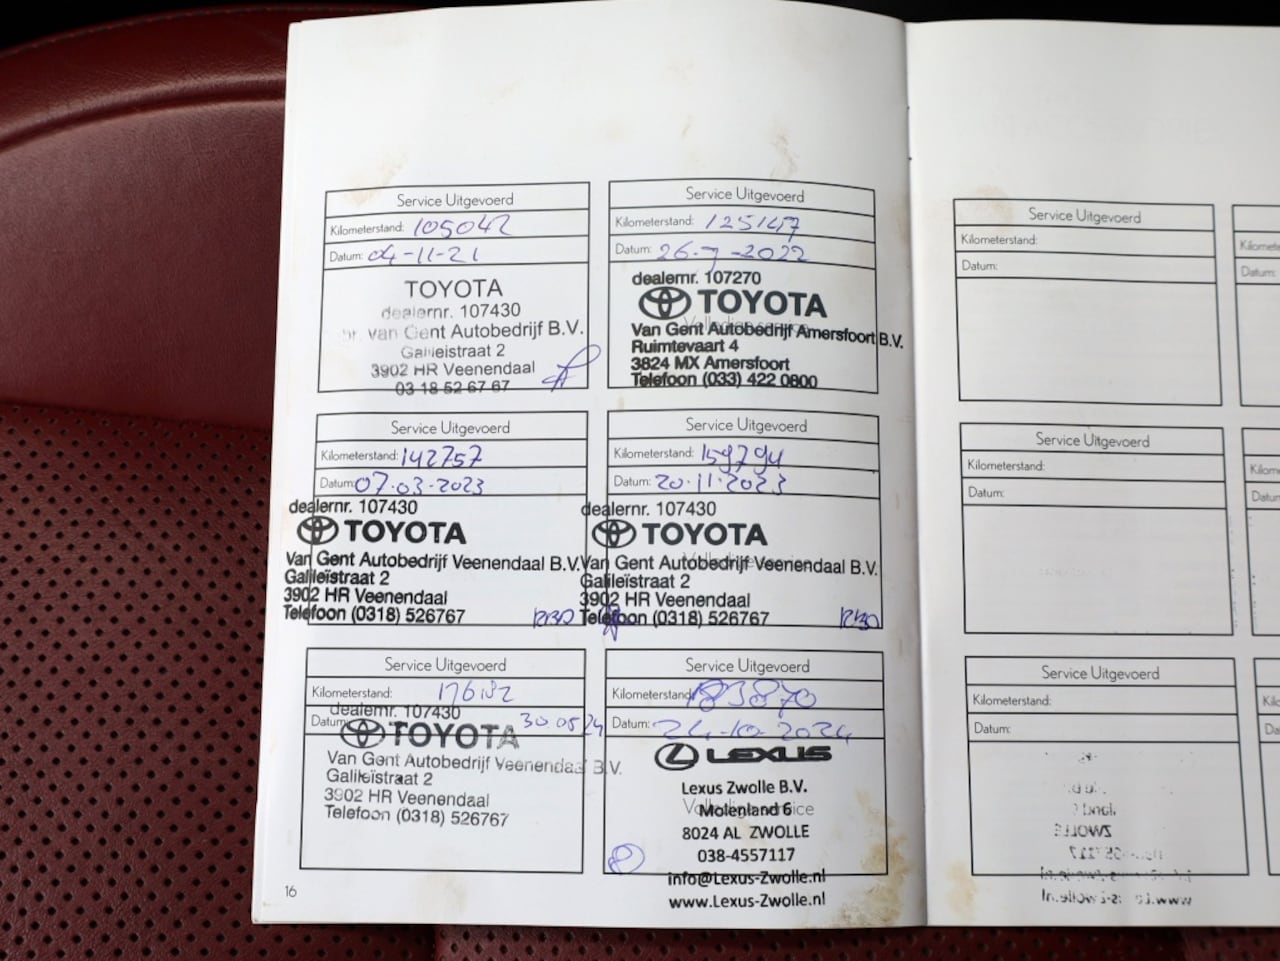 Service Uitgevoerd
Kilometerstand: 105042
Datum: 04-11-21
TOYOTA
dealernr. 107430
van Gent Autobedrijf B.V.
Galileistraat 2
3902 HR Veenendaal
03 18 52 67 67
Service Uitgevoerd
Kilometerstand: 125147
Datum: 26-7-2022
dealernr. 107270
TOYOTA
Volledige service
Van Gent Autobedrijf Amersfoort B.V.
Ruimtevaart 4
3824 MX Amersfoort
Telefoon (033) 422 0800
Service Uitgevoerd
Kilometerstand: 142757
Datum: 07-03-2023
dealernr. 107430
TOYOTA
Van Gent Autobedrijf Veenendaal B.V.
Galileïstraat 2
3902 HR Veenendaal
Telefoon (0318) 526767
Service Uitgevoerd
Kilometerstand: 159794
Datum: 20-11-2023
dealernr. 107430
TOYOTA
Volledige service
Van Gent Autobedrijf Veenendaal B.V.
Galileïstraat 2
3902 HR Veenendaal
Telefoon (0318) 526767
Service Uitgevoerd
Kilometerstand:
Datum: 30 05 24
dealernr. 107430
TOYOTA
Van Gent Autobedrijf Veenendaal B.V.
Galileïstraat 2
3902 HR Veenendaal
Telefoon (0318) 526767
Service Uitgevoerd
Kilometerstand: 183870
Datum: 24-10-2024
LEXUS
Lexus Zwolle B.V.
Volledige service
Molenland 6
8024 AL ZWOLLE
038-4557117
info@Lexus-Zwolle.nl
www.Lexus-Zwolle.nl
16
Service Uitgevoerd
Kilometerstand:
Datum:
Service Uitgevoerd
Kilometerstand:
Datum:
Service Uitgevoerd
Kilometerstand:
Datum: